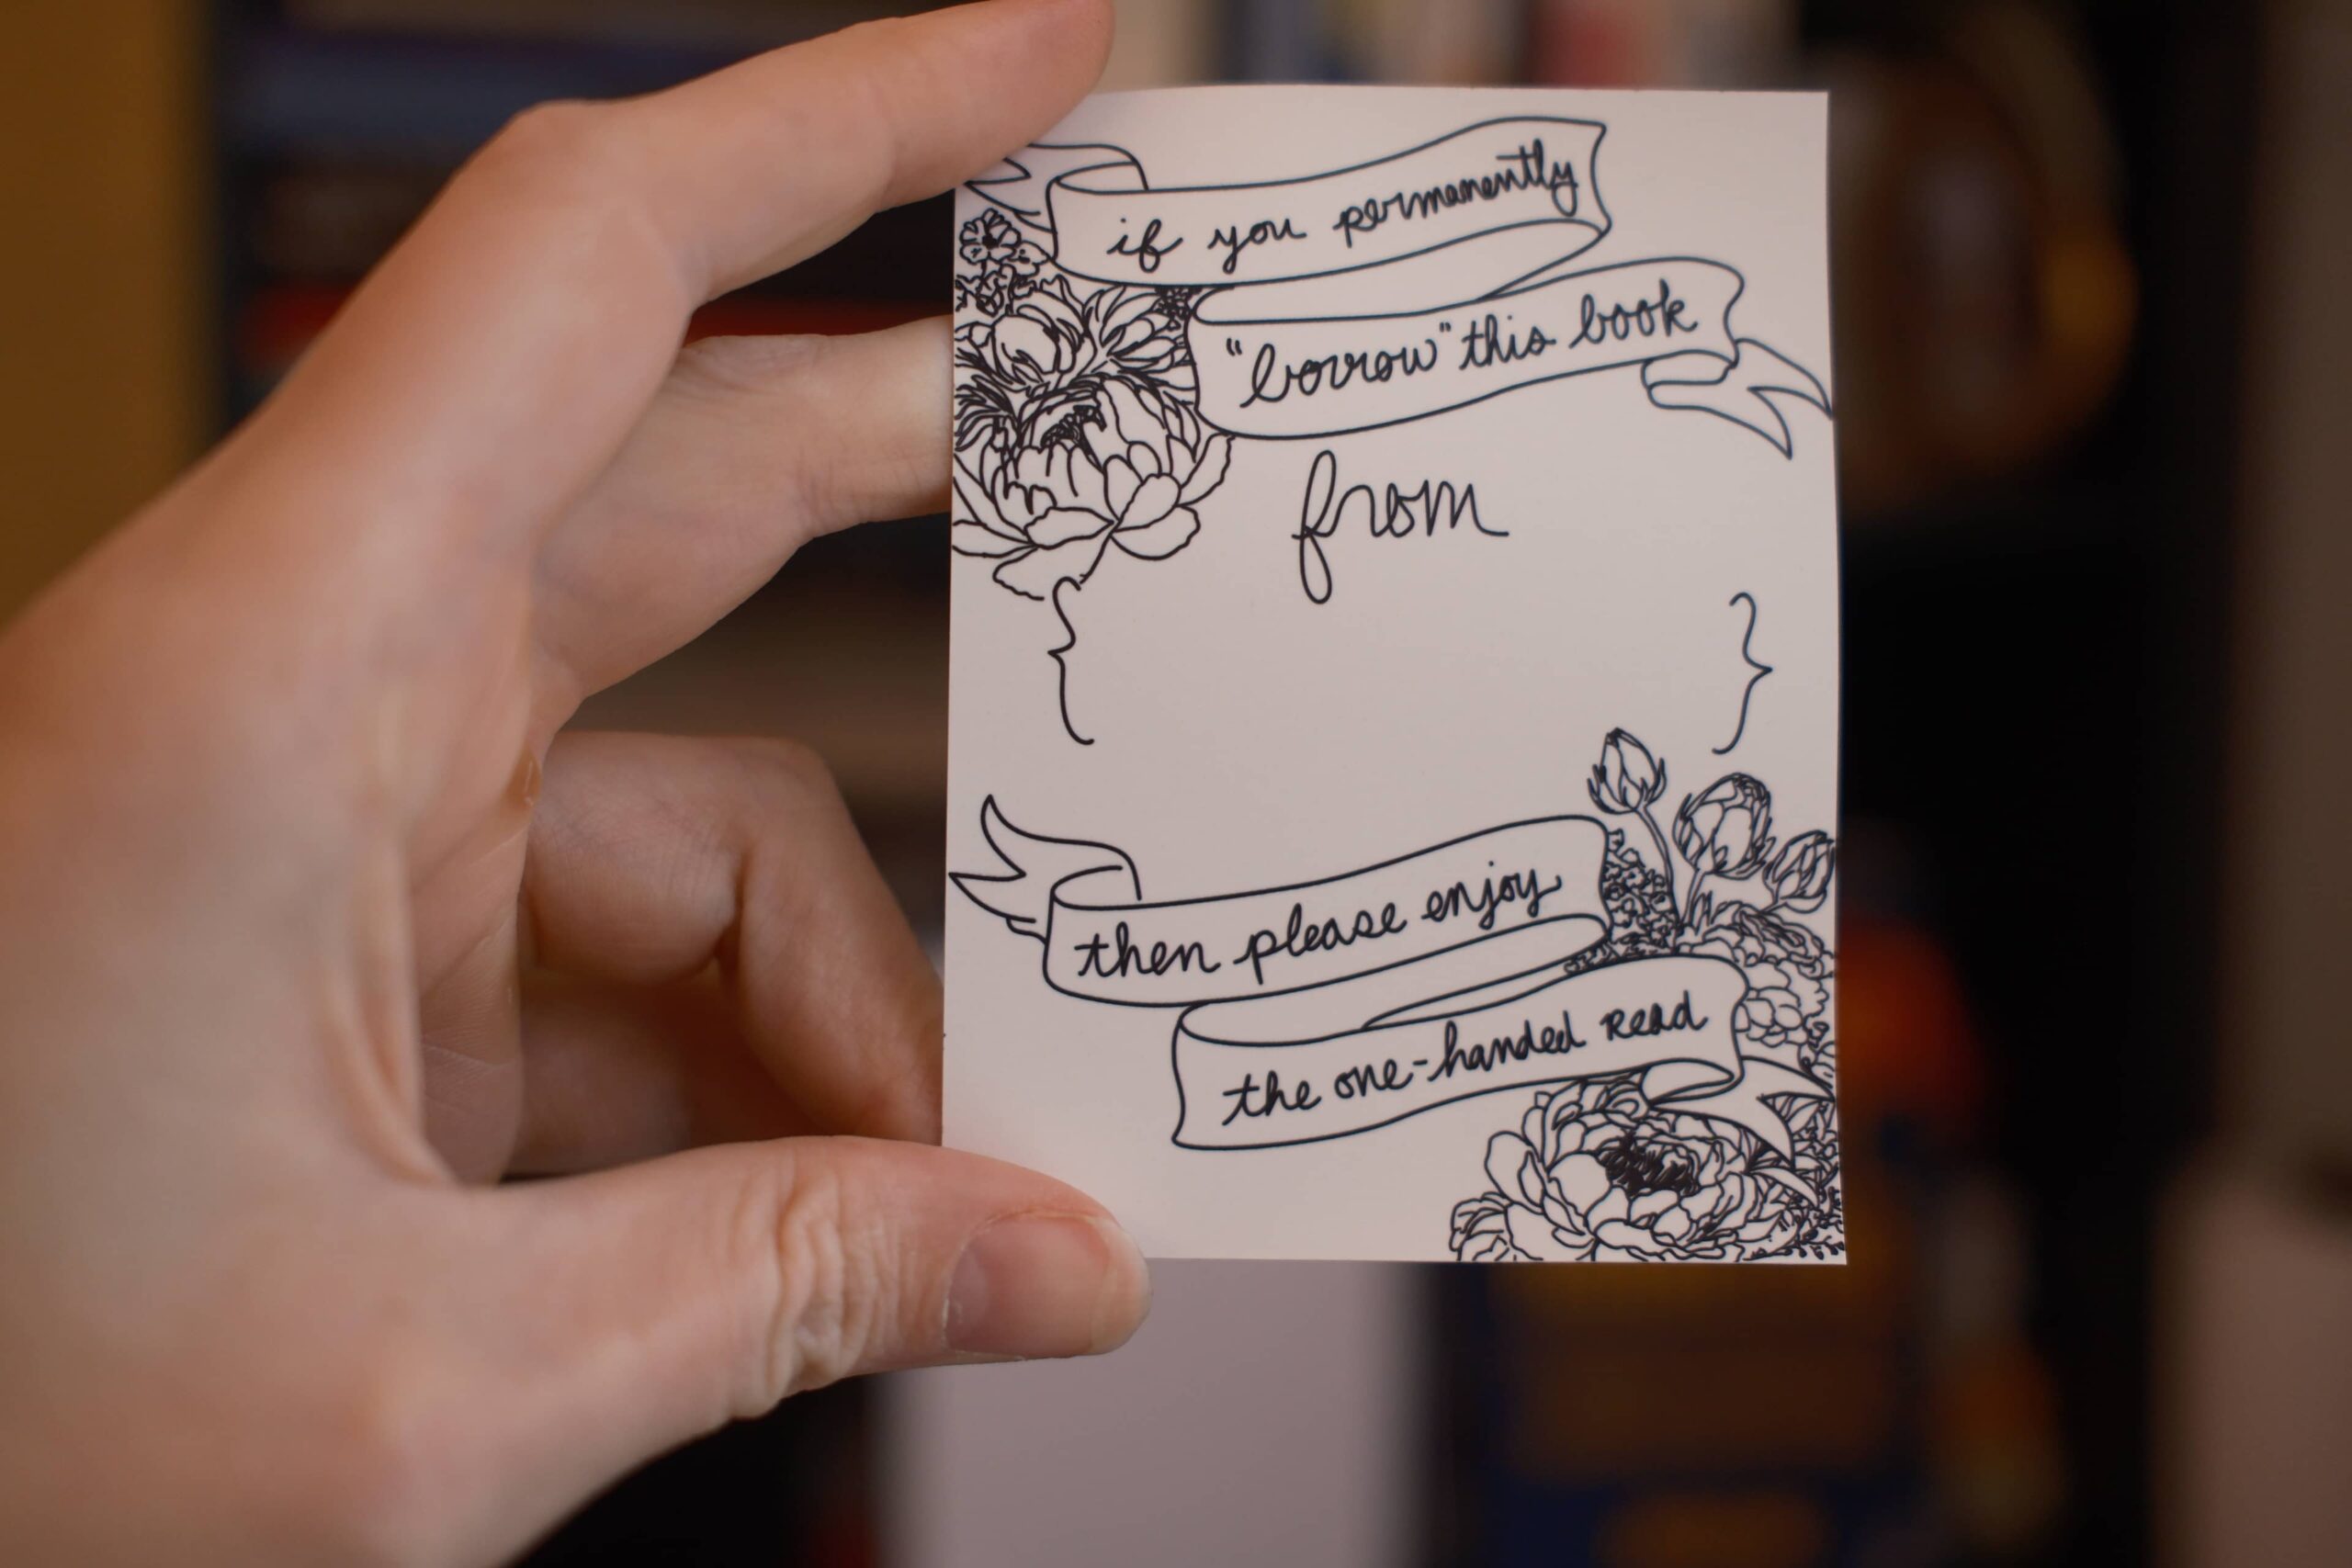 if you permanently
"borrow" this book
from
{ }
then please enjoy
the one-handed read